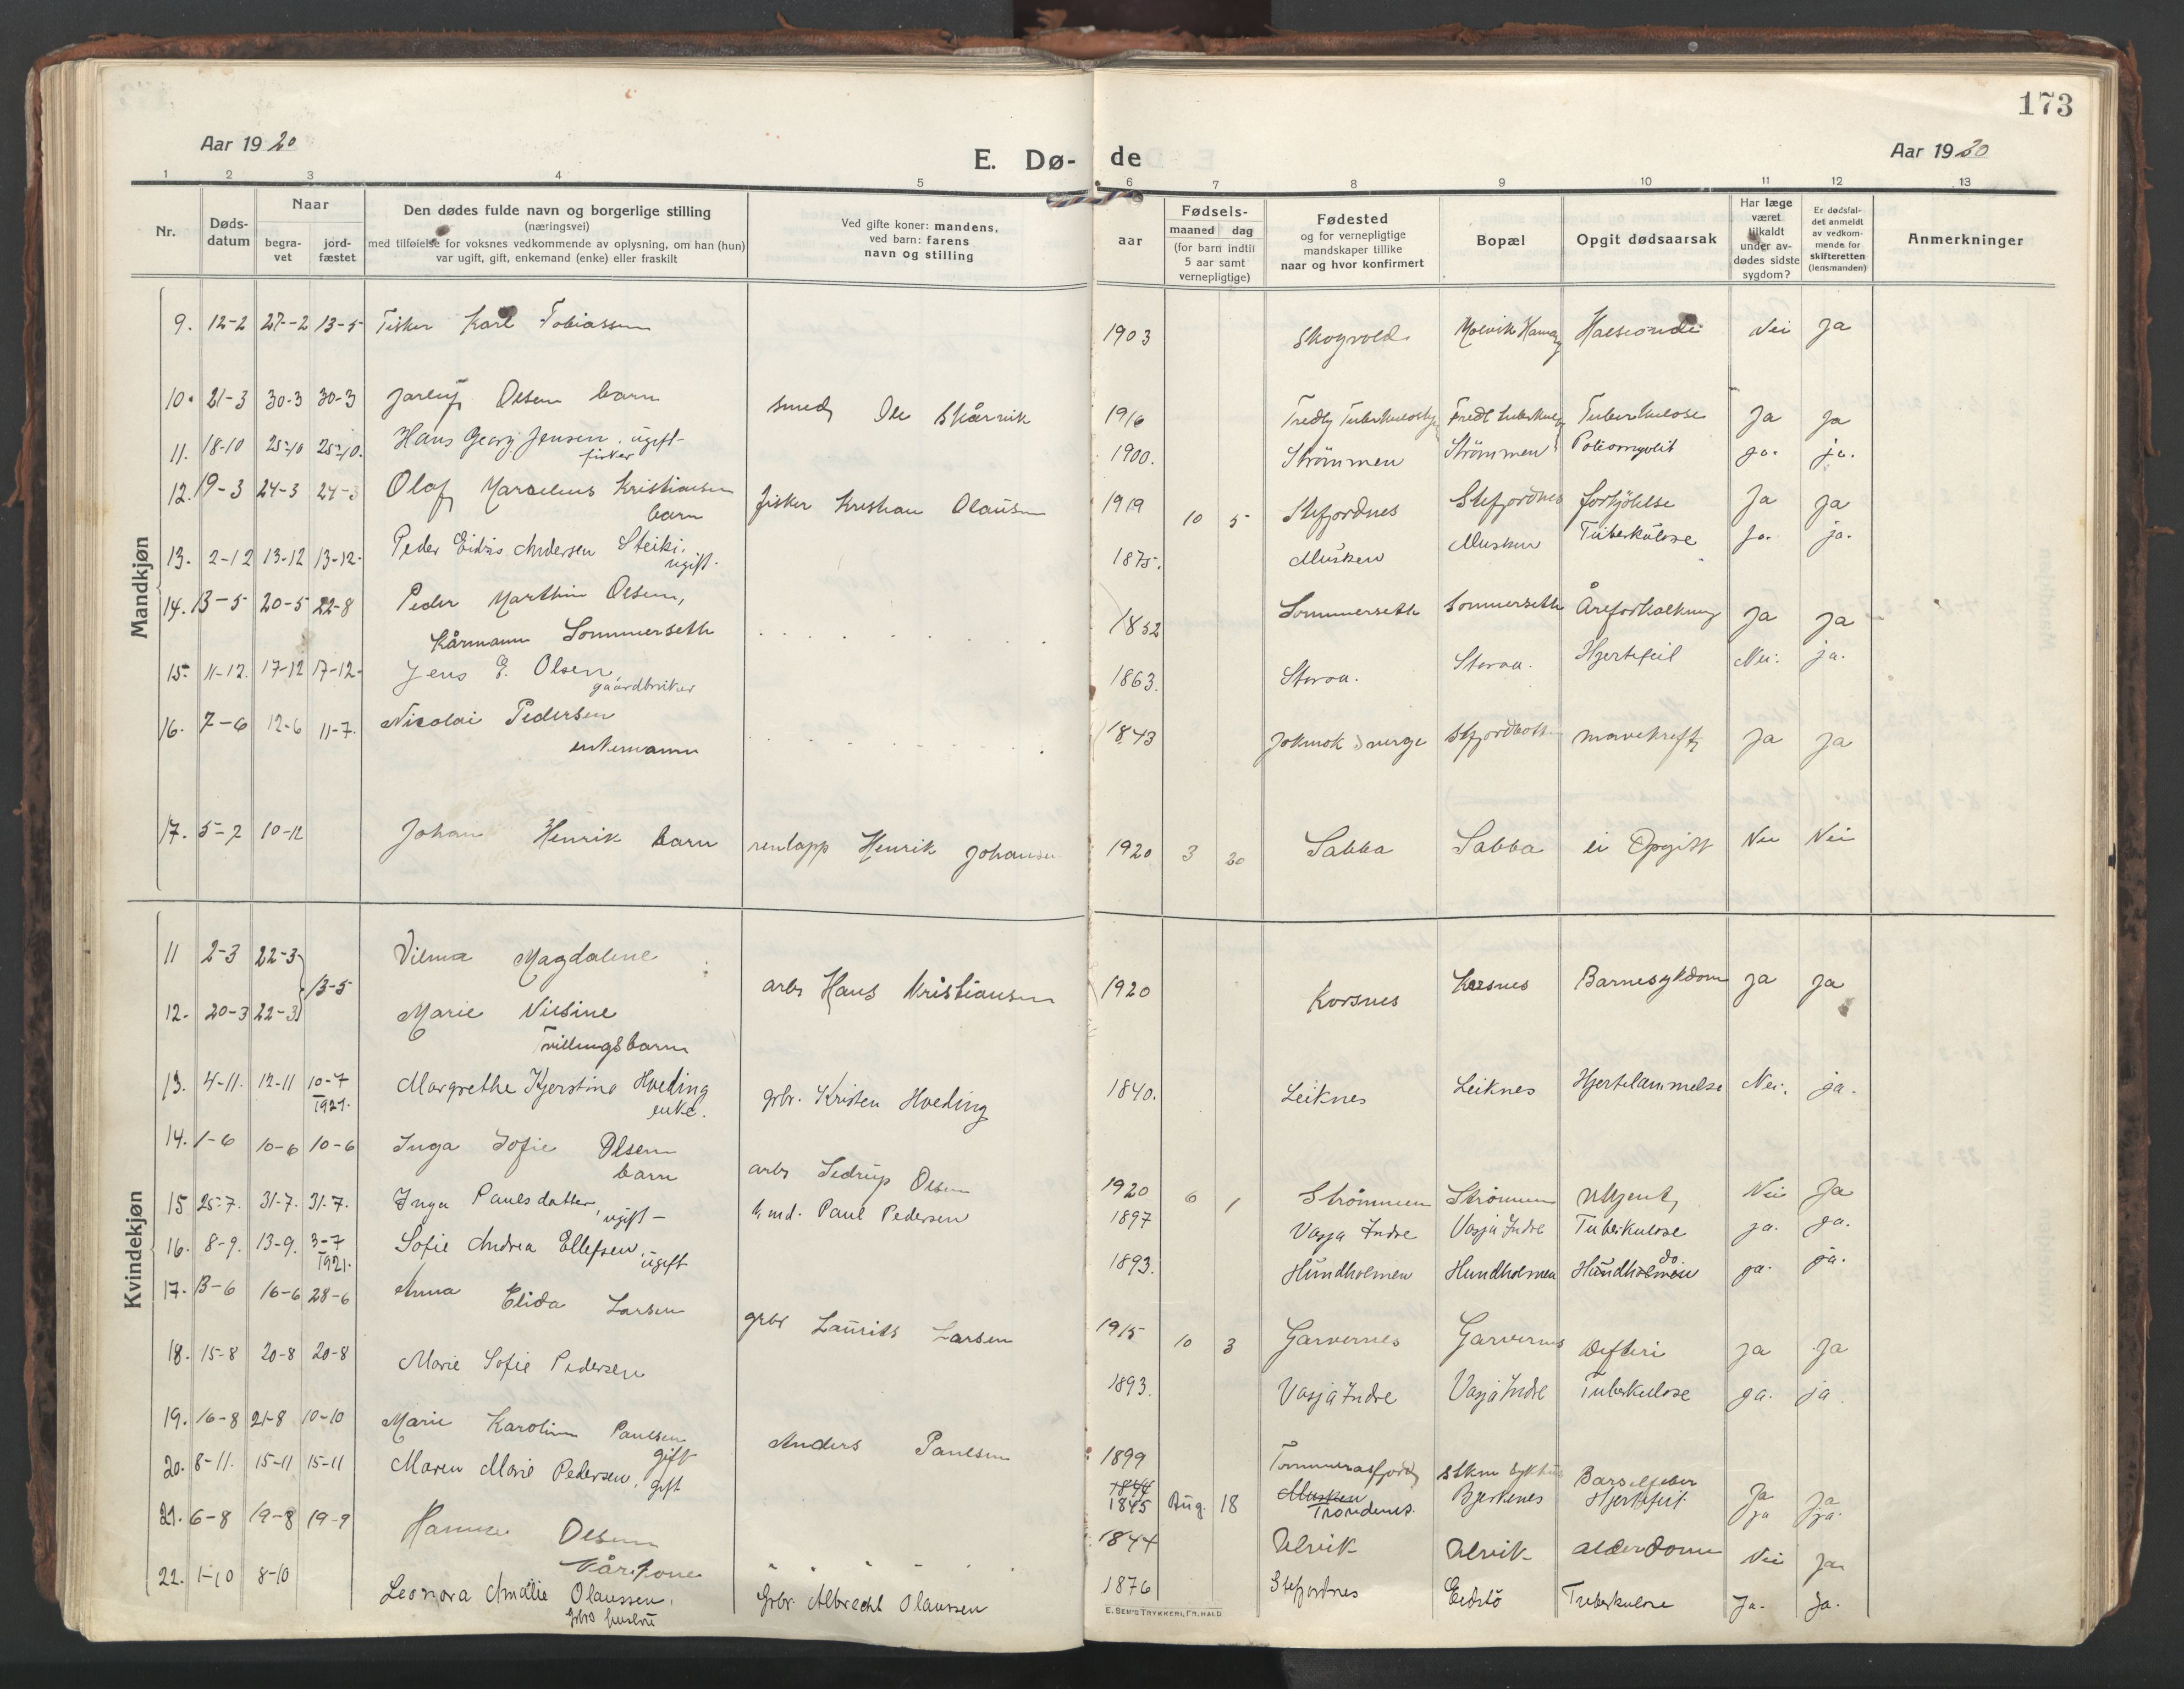 173
Aar 1920
E. Dø- de
Aar 1920
1 2 3 4 5 6 7 8 9 10 11 12 13
Nr.
Døds-
datum
Naar
begra-
vet
jord-
fæstet
Den dødes fulde navn og borgerlige stilling
(næringsvei)
med tilføielse for voksnes vedkommende av oplysning, om han (hun)
var ugift, gift, enkemand (enke) eller fraskilt
Ved gifte koner: mandens,
ved barn: farens
navn og stilling
aar
Fødsels-
maaned dag
(for barn indtil
5 aar samt
vernepligtige)
Fødested
og for vernepligtige
mandskaper tillike
naar og hvor konfirmert
Bopæl
Opgit dødsaarsak
Har læge
været
tilkaldt
under av-
dødes sidste
sygdom?
Er dødsfal-
det anmeldt
av vedkom-
mende for
skifteretten
(lensmanden)
Anmerkninger
Mandkjøn
9. 12-2 27-2 13-5 Fisker Karl Tobiassen 1903 Skogvold Nei Ja
10. 21-3 30-3 30-3 Olsen barn smed Ole Skårvik 1916 Tuberkulose Ja Ja
11. 18-10 25-10 25-10. Hans Georg Jensen. ugift- 1900. Strømmen Strømmen Poliomyelit ja. ja.
fisker
12. 19-3 24-3 24-3 Olaf Marselius Kristiansen fisker Kristian Olausen 1919 10 5 Stefjordnes Stefjordnes forkjölelse Ja Ja
barn
13. 2-12 13-12 13-12- Peder Andersen Steiki. 1875. Musken Musken Tuberkulose Ja. ja.
ugift.
14. 13-5 20-5 22-8 Peder Marthin Olsen, 1832 Sommerseth Sommerseth Åreforkalkning Ja Ja
kårmann Sommerseth
15- 11-12. 17-12 17-12- Jens E. Olsen 1863. Storaa. Storaa. Hjertefeil Nei. ja.
gaardbruker
16. 7-6 12-6 11-7. Nicolai Pedersen 1843 Jokmok Sverge Stfjordbotn mavekreft Ja Ja
enkemann
17. 5-7 10-12 Johan Henrik barn renlapp Henrik Johansen 1920 3 20 Sabba Sabba ei Opgitt Nei Nei
Kvindekjøn
11 2-3 22-3 Vilma Magdalene
13-5 arbr Hans Kristiansen 1920 Korsnes Korsnes Barnesykdom Ja Ja
12. 20-3 22-3 Marie Nilsine
Tvillingsbarn
13. 4-11. 12-11 10-7 Margrethe Kjerstine Hveding grbr. Kristen Hveding 1840. Leiknes Leiknes Hjertelammelse Nei. ja.
1921. enke.
14. 1-6 10-6 10-6 Inga Sofie Olsen arbr Sedrup Olsen 1920 6 1 Strømmen Strømmen Ukjent Nei Ja
barn
15 25-7. 31-7. 31-7. Inga Paulsdatter, ugift- Paul Pedersen 1897 Vasja Indre Vasja Indre Tuberkulose ja. ja.
16. 8-9. 13-9. 3-7 Sofie Andrea Ellefsen. ugift 1893. Hundholmen Hundholmen Hundholmen do. ja. ja.
1921.
17. 13-6 16-6 28-6 Anna Elida Larsen grbr Laurits Larsen 1915 10 3 Garvernes Garvernes Difteri Ja Ja
18. 15-8 20-8 20-8 Marie Sofie Pedersen 1893. Vasja Indre Vasja Indre Tuberkulose ja. ja
19. 16-8 21-8 10-10 Marie Karoline Paulsen Anders Paulsen 1899 Tømmeraasfjord Barselfeber Ja Ja
gift
20. 8-11. 15-11 15-11 Maren Marie Pedersen. gift 1844 1845 Aug. 18 Musken Trondenes. Bjerkenes Hjertefeil. ja ja.
21. 6-8 19-8 19-9 Hanna Olsen 1844 Ulvik Ulvik alderdom Nei Ja
Kårkone
22. 1-10 8-10 Leonora Amalie Olaussen. Grbr. Albrecht Olaussen 1876 Stefjordnes Eidstö Tuberkulose Ja. Ja.
Grbrs hustru
E. SEM'S TRYKKERI, FR. HALD